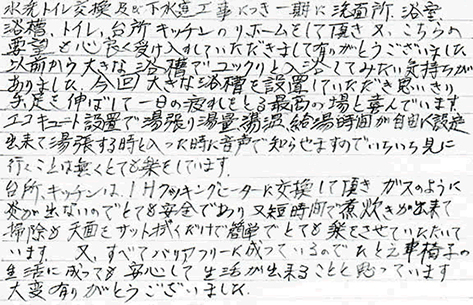 水洗トイレ交換及び下水道工事につき一期に洗面所.浴室
浴槽、トイレ、台所キッチンのリホームをして頂き又、こちらの
要望を心良く受け入れていただきまして有りがとうございました.
以前から大きな浴槽でユックリと入浴してみたい気持ちが
ありました.今回大きな浴槽を設置していただき思いきり
手足を伸ばして一日の疲れをとる最高の場と喜んでいます.
エコキュート設置で湯張り湯量湯温.給湯時間が自由に設定
出来て湯張する時と入った時に音声で知らせますのでいちいち見に
行くことは無くとても楽をしています.
台所、キッチンは.IHクッキングヒーターに交換して頂きガスのように
炎が出ないのでとても安全であり又短時間で煮炊きが出来て
掃除も天面をサット拭くだけで簡単でとても楽をさせていただいて
います. 又、すべてバリアフリーに成っているのでたとえ車椅子の
生活に成っても安心して生活が出来ることと思っています
大変有りがとうございました.